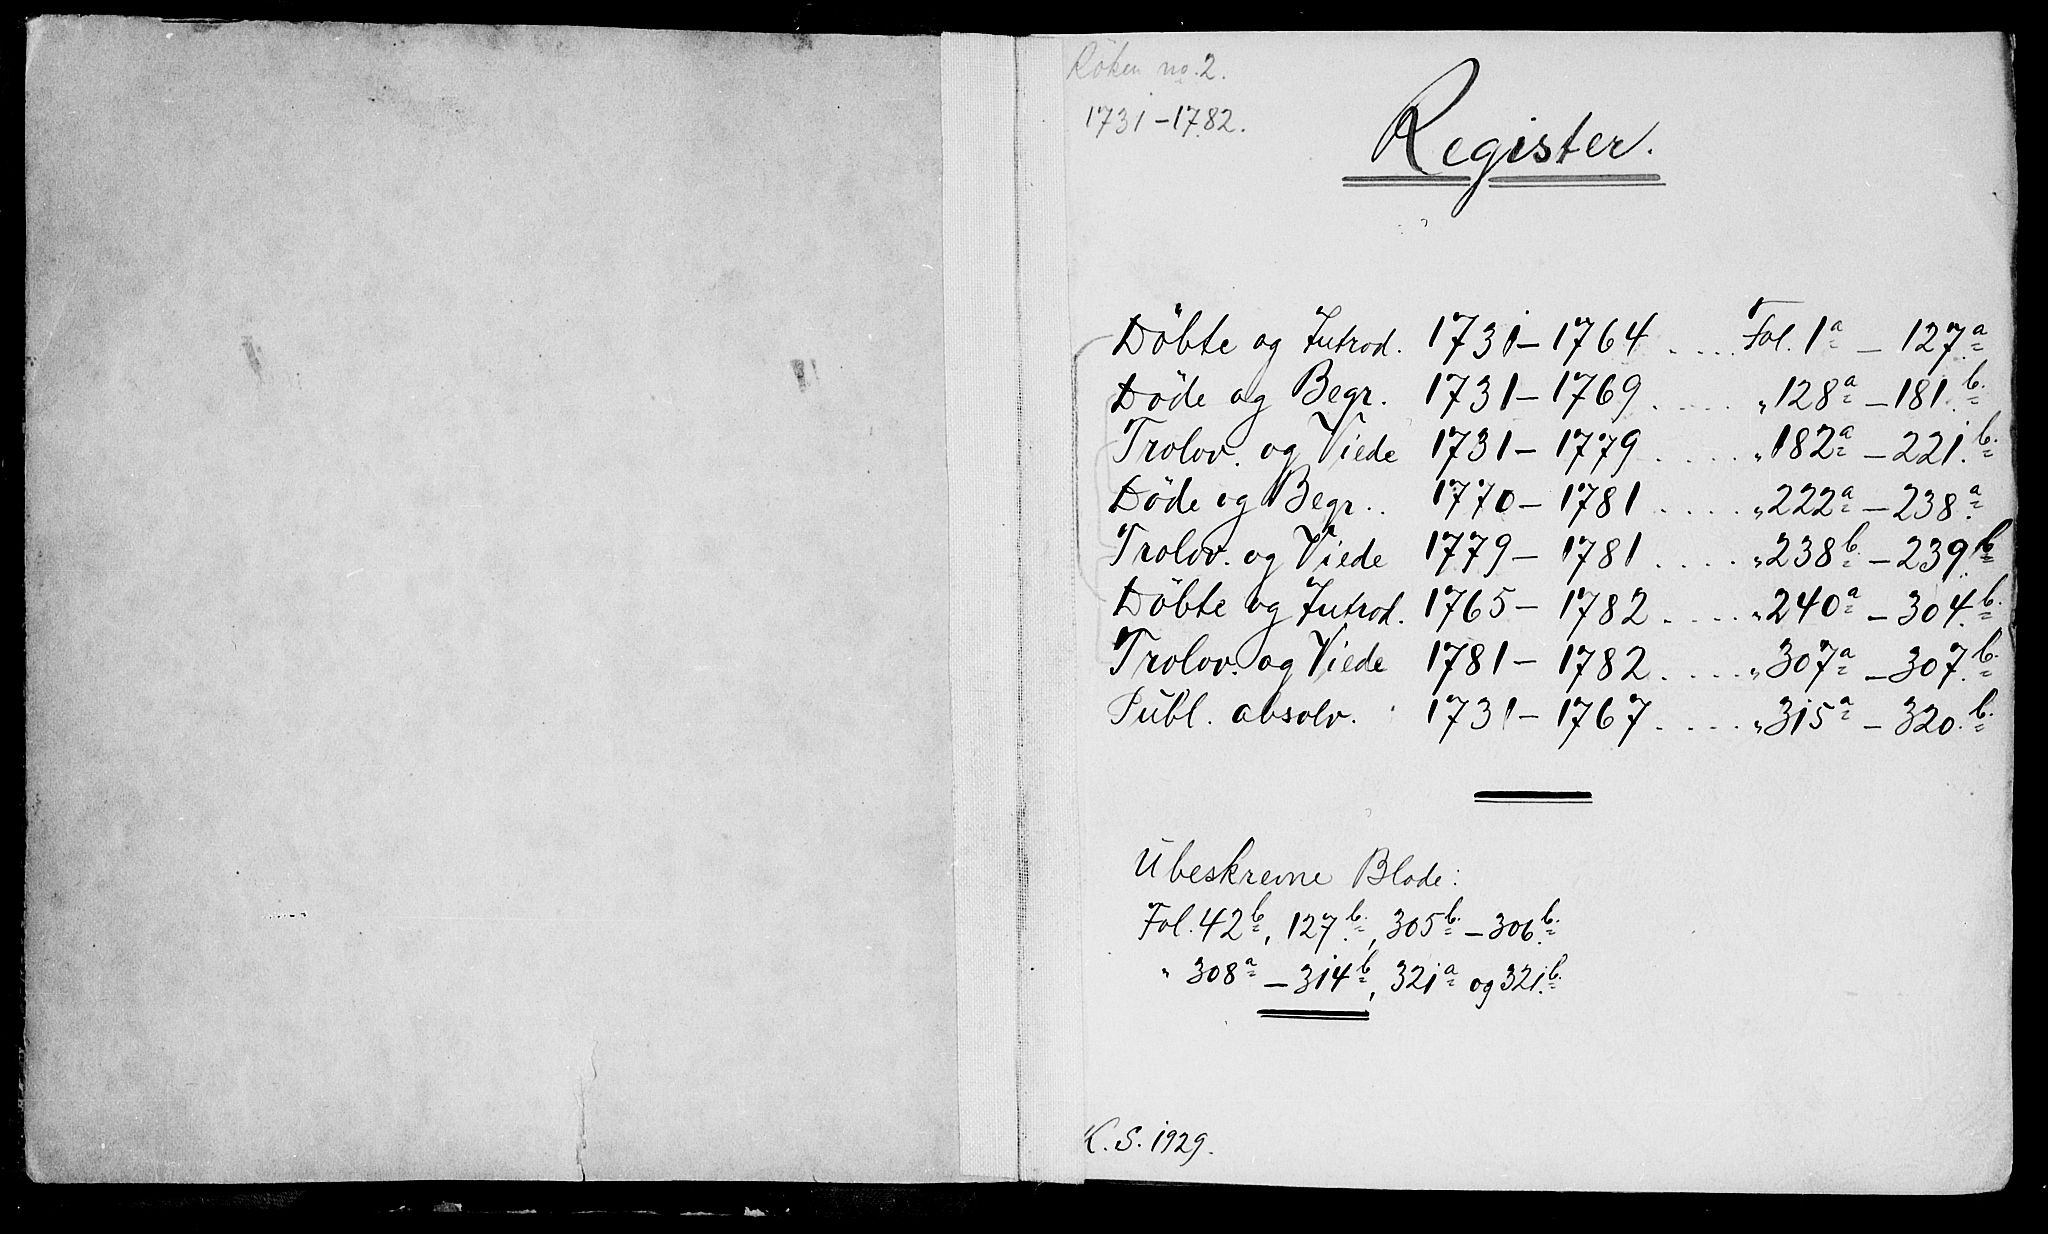 Röken no. 2.
1731–1782.
Register.
Döbte og Introd. 1731–1764 .... Fol. 1a – 127a
Döde og Begr. 1731–1769 .... „ 128a – 181b.
Trolov. og Viede 1731–1779 .... „ 182a – 221b.
Döde og Begr.. 1770–1781 .... „ 222a – 238a
Trolov. og Viede 1779–1781 .... „ 238b. – 239b
Döbte og Introd. 1765–1782 .... „ 240a – 304b.
Trolov. og Viede 1781–1782 .... „ 307a – 307b.
Publ. absolv. 1731–1767 .... „ 315a – 320b.
Ubeskrevne Blade:
Fol. 42b, 127b., 305b. – 306b.
„ 308a – 314b, 321a og 321b.
K. S. 1929.